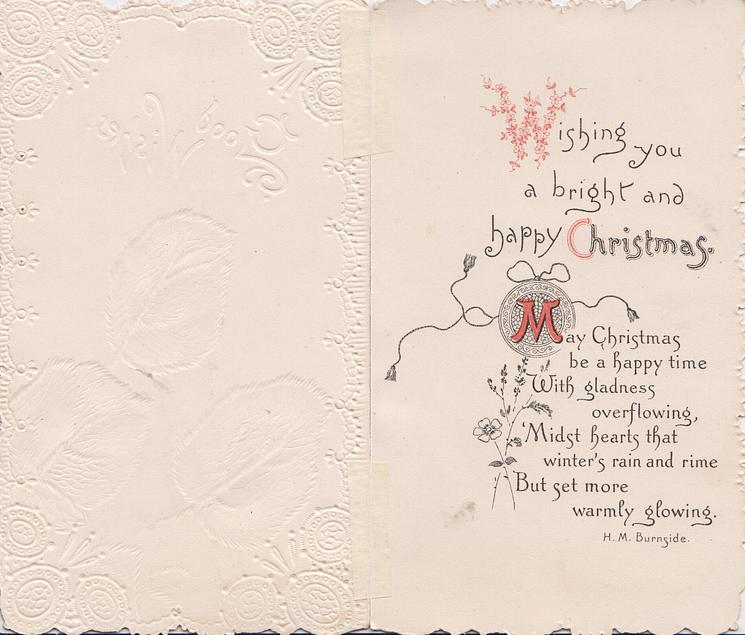 Good Wishes
Wishing you
a bright and
happy Christmas.
May Christmas
be a happy time
With gladness
overflowing,
'Midst hearts that
winter's rain and rime
But set more
warmly glowing.
H. M. Burnside.